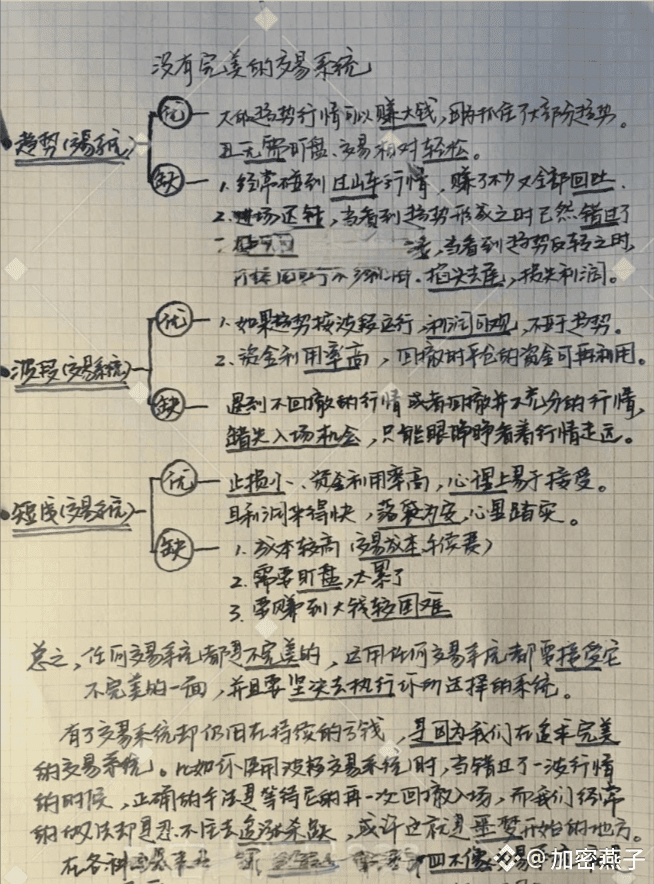 没有完美的交易系统
趋势(交易系统)
优
大的趋势行情可以赚大钱,因为抓住了大部分趋势。
且无需盯盘、交易相对轻松。
缺
1. 经常碰到过山车行情,赚了不少又全部回吐.
2. 进场迟钝,当看到趋势形成之时已然错过了
,当看到趋势反转之时,
掐头去尾,损失利润。
波段(交易系统)
优
1. 如果趋势按波段运行,利润可观,不亚于趋势。
2. 资金利用率高,回撤时平仓的资金可再利用。
缺
遇到不回撤的行情或者回撤并不充分的行情,
错失入场机会,只能眼睁睁看着行情走远。
短线(交易系统)
优
止损小、资金利用率高,心理上易于接受。
且利润来得快,落袋为安,心里踏实。
缺
1. 成本较高(交易成本手续费)
2. 需要盯盘,太累了
3. 要赚到大钱较困难
总之,任何交易系统都是不完美的,运用任何交易系统都要接受它
不完美的一面,并且要坚决去执行你所选择的系统。
有了交易系统却仍旧在持续的亏钱,是因为我们在追求完美
的交易系统。比如你使用波段交易系统时,当错过了一波行情
的时候,正确的手法是等待它的再一次回撤入场,而我们经常
的做法却是忍不住去追涨杀跌,或许这就是噩梦开始的地方。
在各种 四不像
@加密燕子